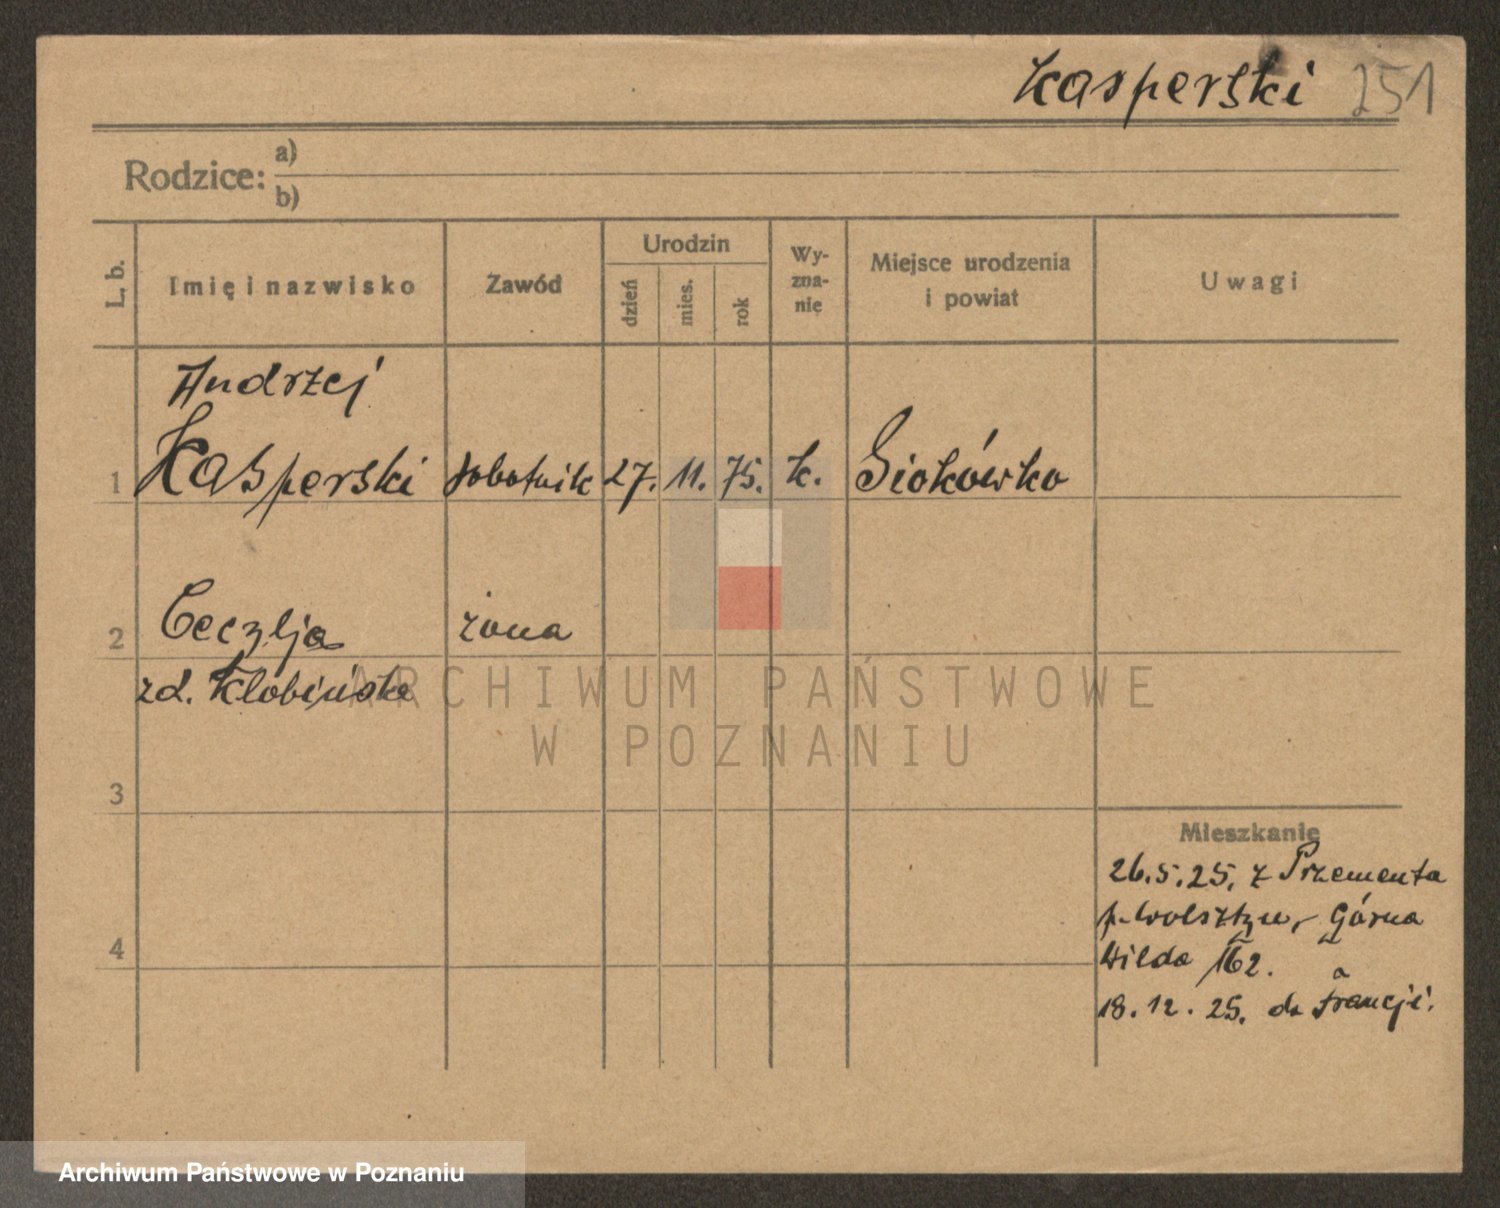 Kasperski 251
Rodzice: a)
b)
L. b.
Imię i nazwisko
Zawód
Urodzin
dzień
mies.
rok
Wy-
zna-
nie
Miejsce urodzenia
i powiat
Uwagi
Andrzej
1 Kasperski robotnik 27. 11. 75. k. Siekówko
2 Cecylja żona
zd. Klobińska
ARCHIWUM PAŃSTWOWE
W POZNANIU
3
Mieszkanie
26.5.25. z Przementa
p. Wolsztyn, Górna
4
Wilda 162. a
18.12.25. do Francji.
Archiwum Państwowe w Poznaniu